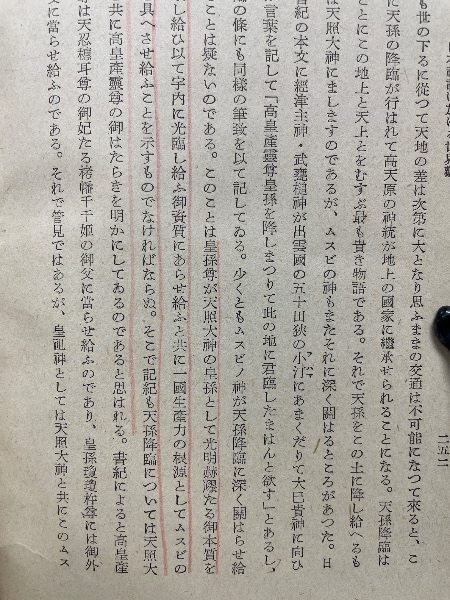 日本神話に於ける世界觀
二五二
も世の下るに從つて天地の差は次第に大となり思ふままの交通は不可能になつて來ると、こ
に天孫の降臨が行はれて高天原の神統が地上の國家に繼承せられることになる。天孫降臨は
ことにこの地上と天上とをむすぶ最も貴き物語である。それで天孫をこの土に降し給へるも
は天照大神にましますのであるが、ムスビの神もまたそれに深く關はるところがあつた。日
紀の本文に經津主神・武甕槌神が出雲國の五十田狹の小汀にあまくだりて大己貴神に向ひ
言葉を記して「高皇產靈尊皇孫を降しまつりて此の地に君臨したまはんと欲す」とあるし、
の條にも同樣の筆致を以て記してゐる。少くともムスビノ神が天孫降臨に深く關はらせ給
ことは疑ないのである。このことは皇孫尊が天照大神の皇孫として光明赫燿たる御本質を
し給ひ以て宇內に光臨し給ふ御資質にあらせ給ふと共に一國生產力の根源としてムスビの
具へさせ給ふことを示すものでなければならぬ。そこで記紀も天孫降臨については天照大
共に高皇產靈尊の御はたらきを明かにしてゐるのであると思はれる。書紀によると高皇產
は天忍穗耳尊の御妃たる栲幡千千姬の御父に當らせ給ふのであり、皇孫瓊瓊杵尊には御外
に當らせ給ふのである。それで管見ではあるが、皇祖神としては天照大神と共にこのムス